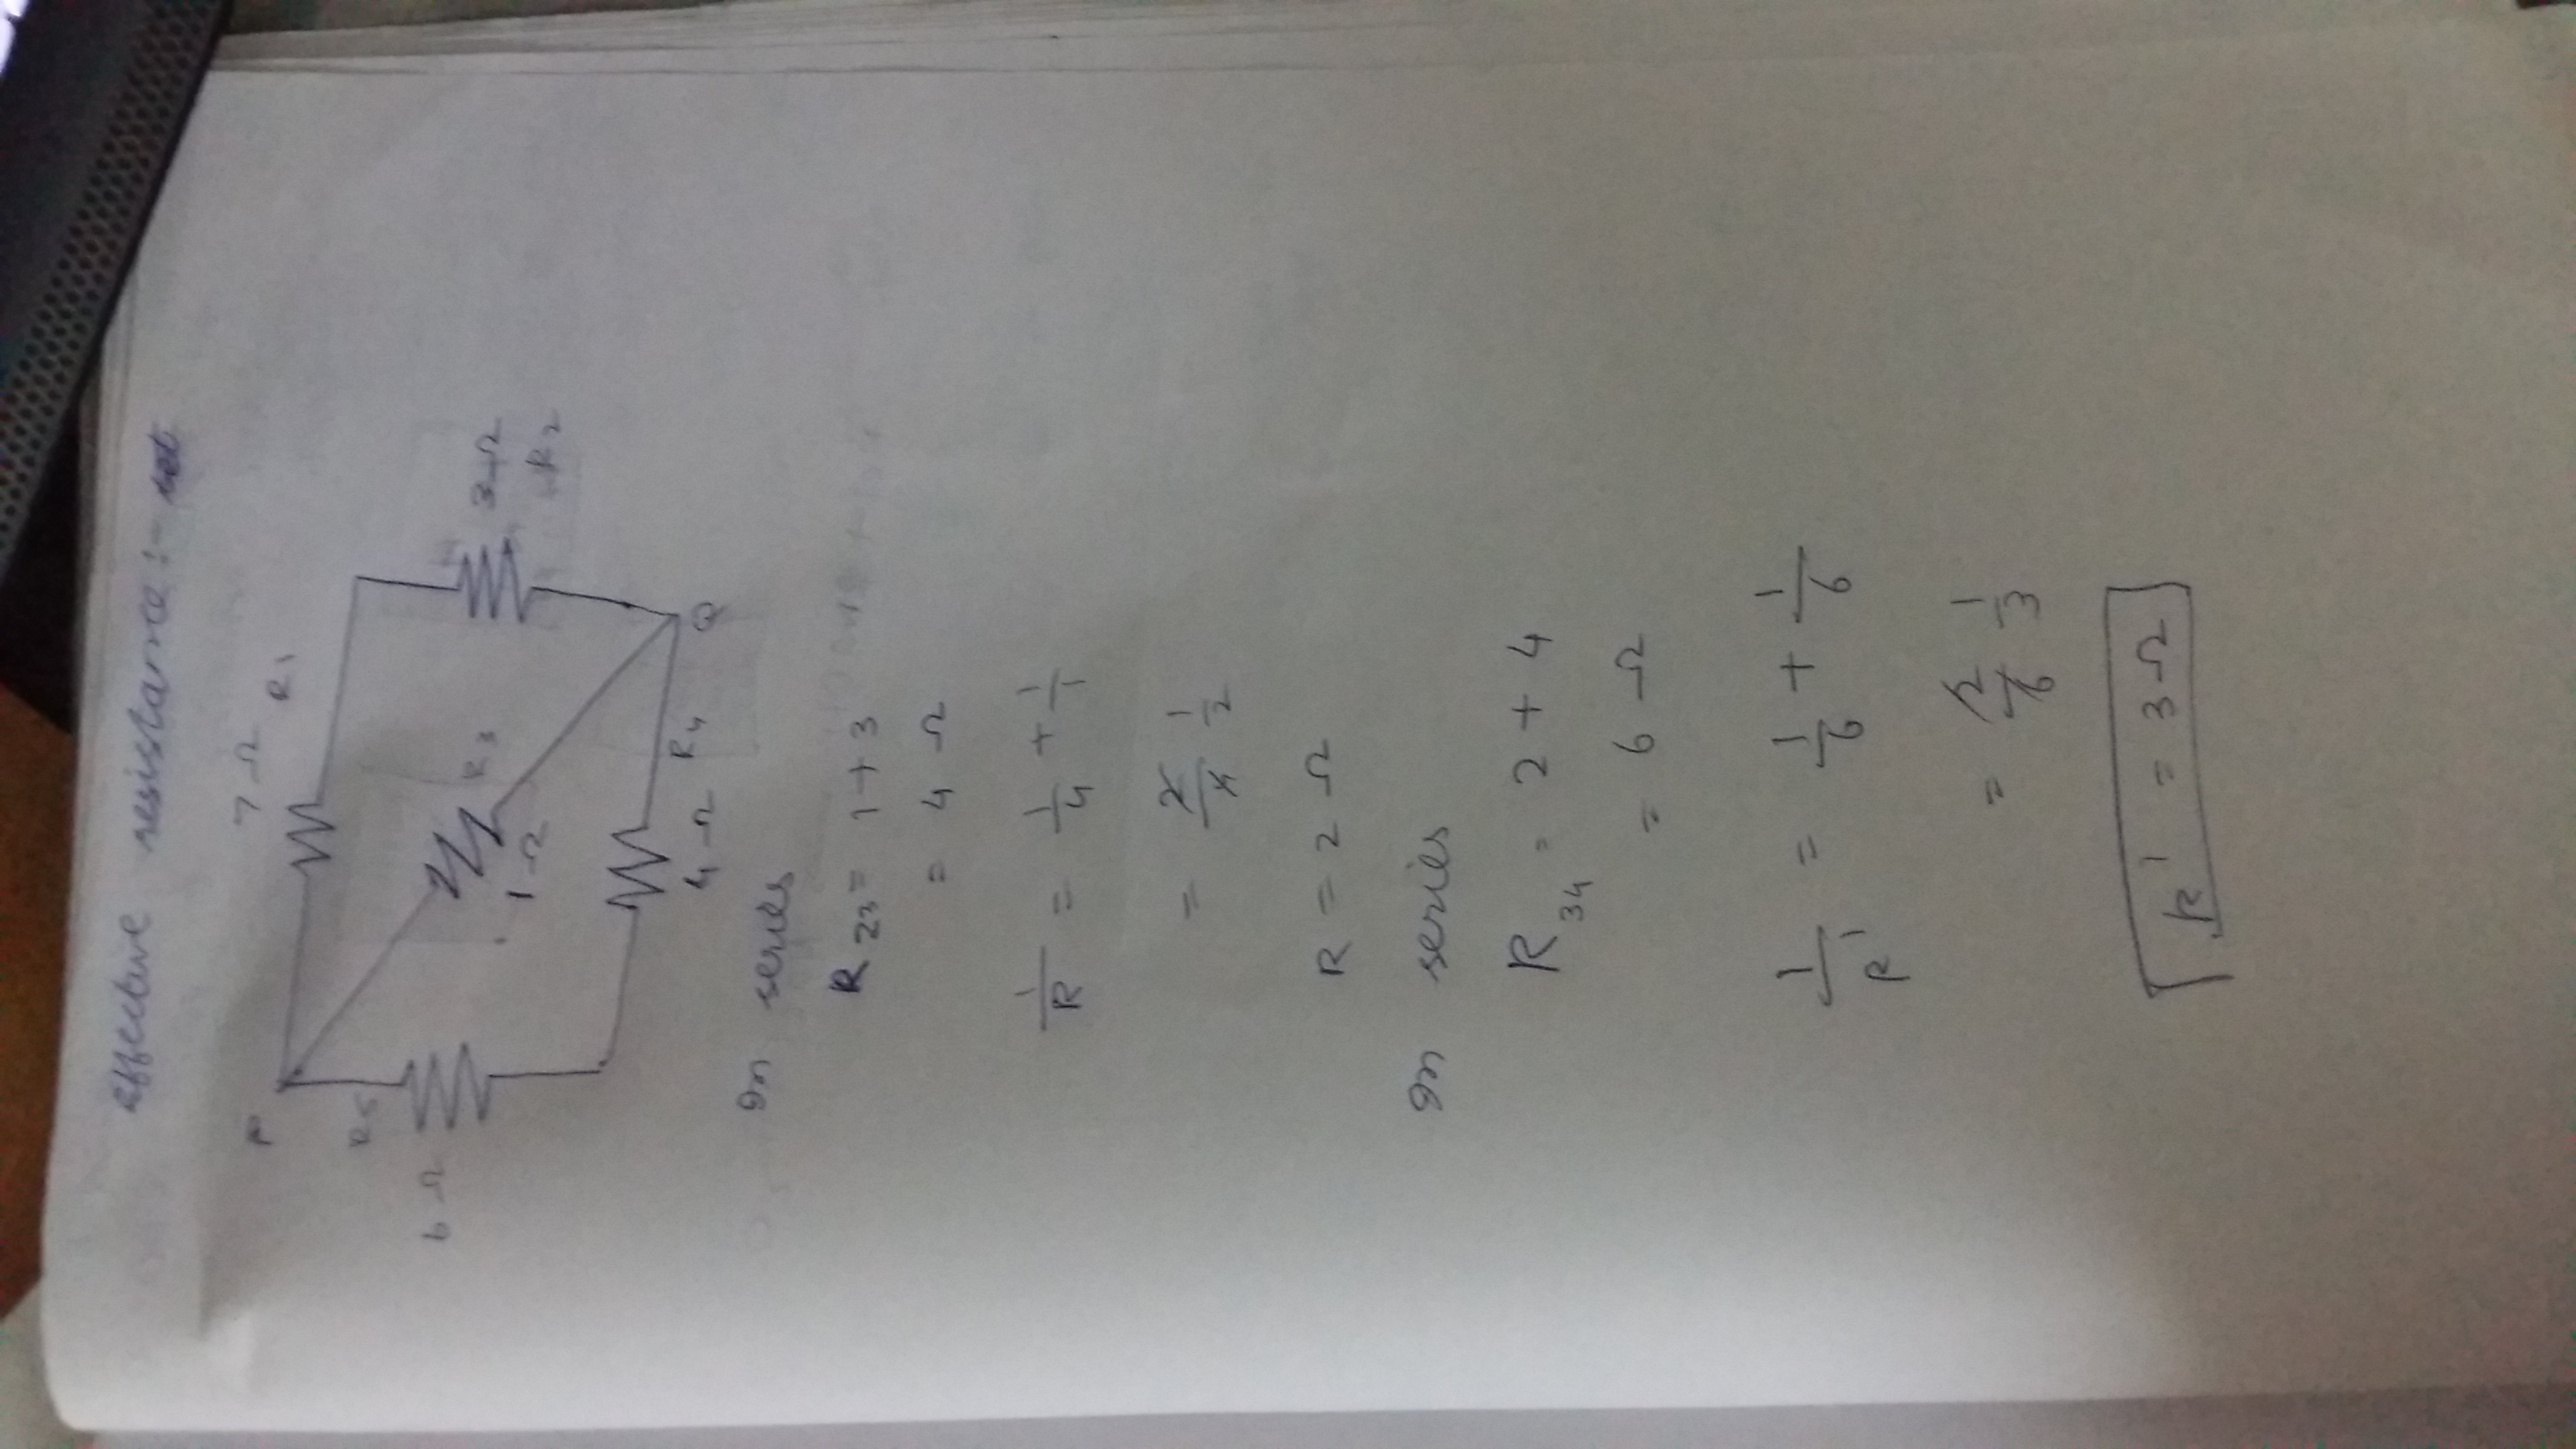 effective resistance :-
7 Ω R1
P
R5
6 Ω
R3
1 Ω
3 Ω
R2
4 Ω R4
Q
In series
R23 = 1 + 3
= 4 Ω
1/R = 1/4 + 1/1
= 2/4 1/2
R = 2 Ω
In series
R34 = 2 + 4
= 6 Ω
1/R' = 1/6 + 1/6
= 2/6 1/3
R' = 3 Ω